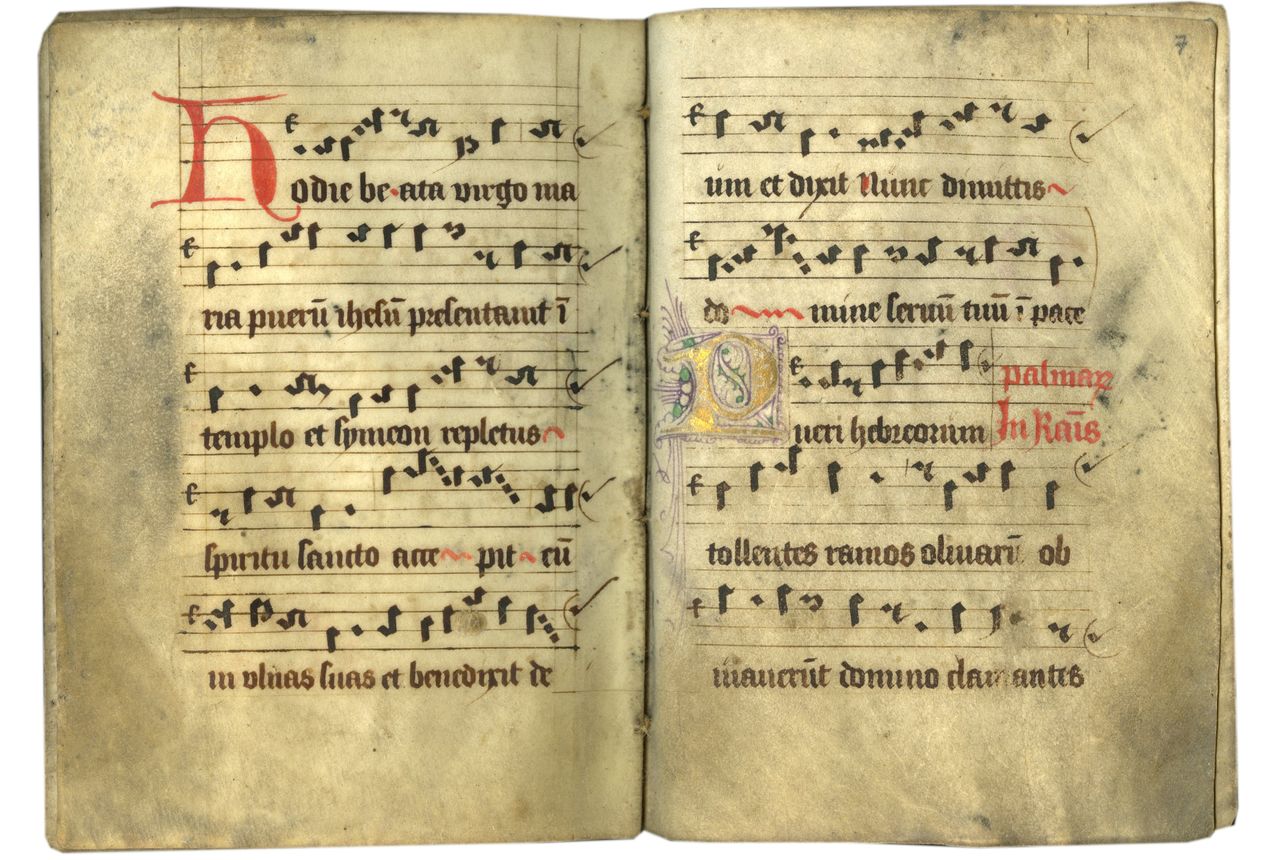 Hodie be ata virgo ma
ria puerū ihesū presentauit ī
templo et symeon repletus
spiritu sancto acce pit eū
in vlnas suas et benedixit de
7
um et dixit Nunc dimittis
do mine seruū tuū ī pace
palmaꝝ
Pueri hebreorum In Ramīs
tollentes ramos oliuarū ob
uiauerūt domino clamantes